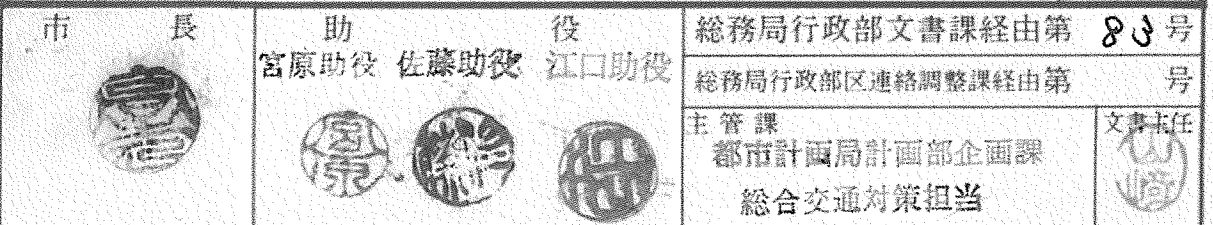 市長
助役
宮原助役 佐藤助役 江口助役
総務局行政部文書課経由第83号
総務局行政部区連絡調整課経由第 号
主管課
都市計画局計画部企画課
総合交通対策担当
文書主任
宮原
山崎